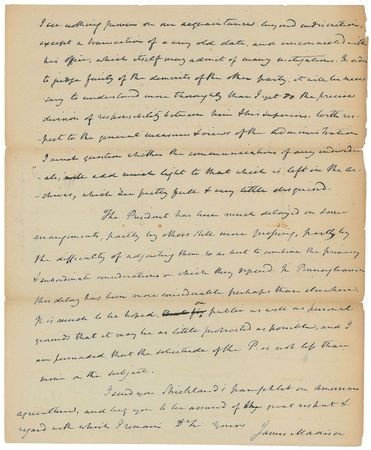 I see nothing proven on our acquaintance beyond indiscretion,
except a transaction of a very old date, and unconnected with
his office, which itself may admit of many mitigations. In order
to judge fairly of the demerits of the other party, it will be neces
sary to understand more thoroughly than I yet do the precise
division of responsibility between him & his superiors. With res-
-pect to the general measures & views of the Administration
I must question whether the communications of any individu-
-als, will add much light to that which is left in the ar-
-chives, which are pretty full & very little disguised.
The President has been much delayed on some
arrangements, partly by others still more pressing, partly by
the difficulty of adjusting them so as best to combine the primary
& subordinate considerations on which they depend. In Pennsylvania
this delay has been more considerable perhaps than elsewhere.
It is much to be hoped, on public as well as personal
grounds that it may be as little protracted as possible, and I
am persuaded that the solicitude of the P. is not less than
mine on the subject.
I send you Strickland's pamphlet on American
agriculture, and beg you to be assured of the great respect &
regard with which I remain Dr Sir yours
James Madison